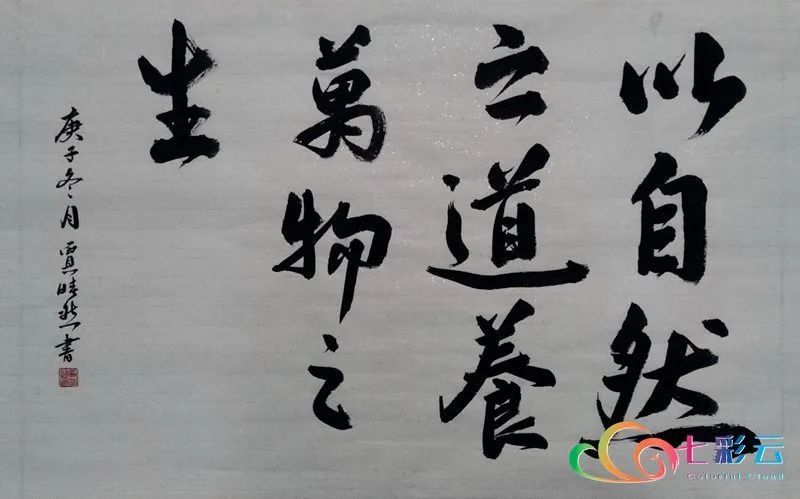 以自然
之道養
萬物之
生
庚子冬月賈晴然書
七彩云
Colorful.Cloud